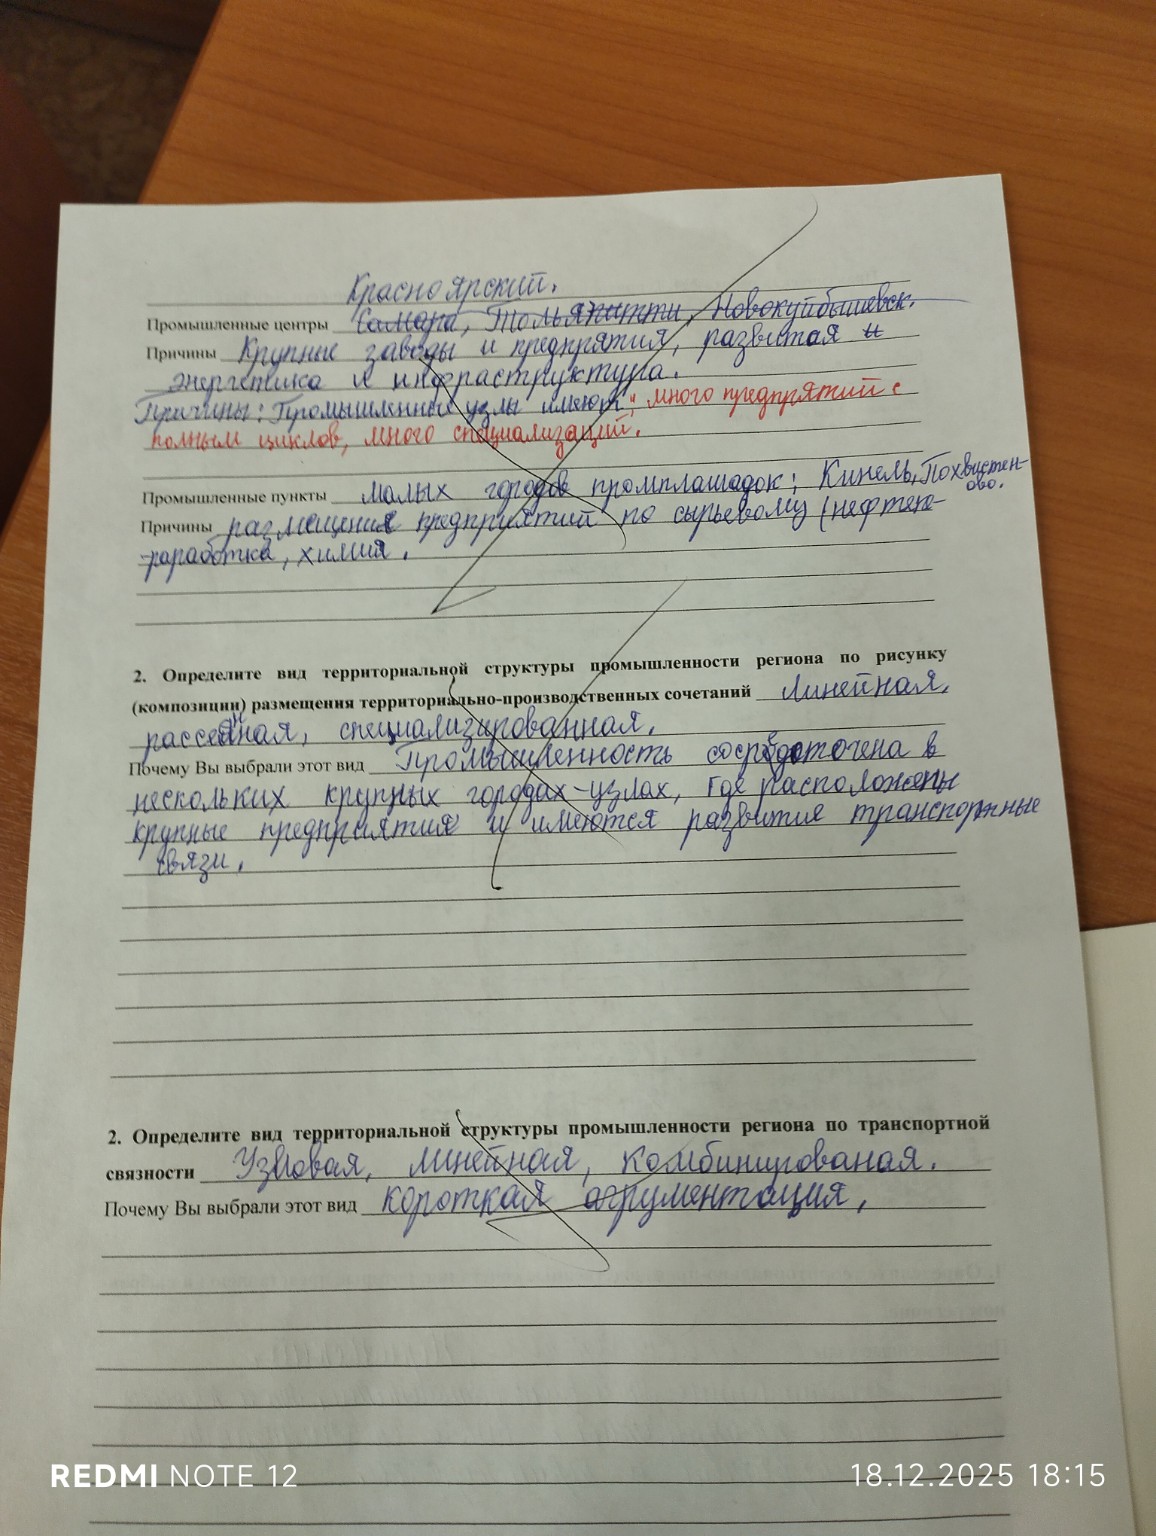 Красноярский.
Промышленные центры Самара, Тольятти, Новокуйбышевск.
Причины Крупные заводы и предпрятия, развитая и
энергетика и инфраструктура.
Причины: Промышленные узлы имеют: много предпрятий с
полным циклов, много специализаций.
Промышленные пункты малых городов промплашадок; Кинель, Похвистен-
ово.
Причины размещения предприятий по сырьевому (нефтепе-
-раработка, химия.
2. Определите вид территориальной структуры промышленности региона по рисунку
(композиции) размещения территориально-производственных сочетаний Линейная,
рассеяная, специализированная.
Почему Вы выбрали этот вид Промышленность сосредоточена в
нескольких крупных городах-узлах, где расположены
крупные предприятия и имеются развития транспортные
связи.
2. Определите вид территориальной структуры промышленности региона по транспортной
связности Узловая, линейная, комбинированая.
Почему Вы выбрали этот вид короткая аргументация,
REDMI NOTE 12
18.12.2025 18:15